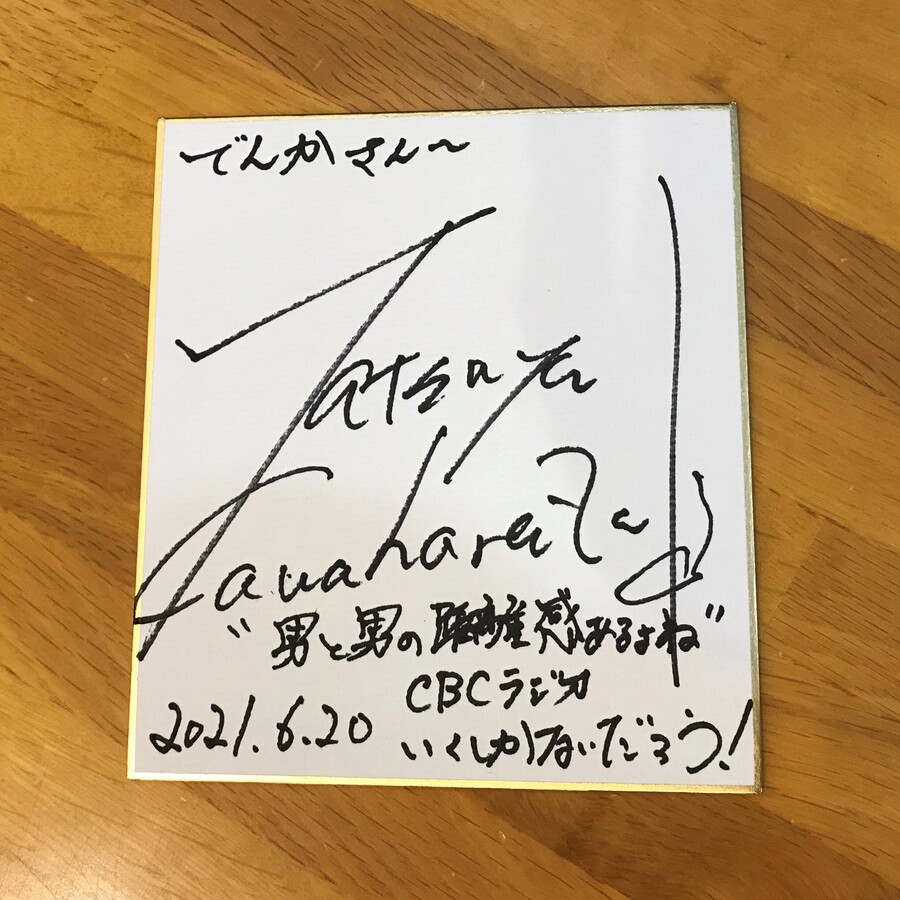 でんかさん〜
"男と男の距離感あるよね"
CBCラジオ
2021.6.20
いくしかないだろう!